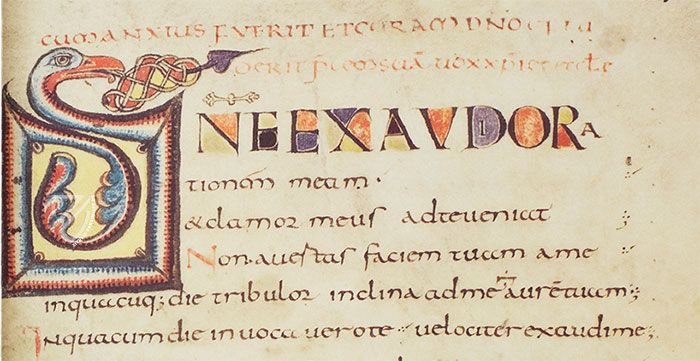 CUM ANXIUS FUERIT ET CORAM DNO
DERIT
DNE EXAUDI ORA
tionem meam·
& clamor meus ad te veniat
Non avertas faciem tuam a me
in quacuq; die tribulor inclina ad me aurem tuam;
Inquacum die invocavero te velociter exaudi me;